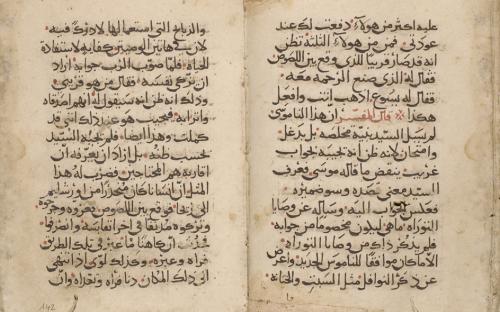 عليه اكثر من هولاء دفعت لك عند
عودتي فمن من هولاء الثلثة تظن
انه قد صار قريبا للذي وقع بين اللصوص
فقال له الذي صنع الرحمة معه
فقال له يسوع اذهب انت وافعل
هكذا قال المفسر ان هذا الناموسي
لم يسل السيد بنية مخلصه بل بدغل
وامتحان لانه ظن انه يجيبه بجواب
غريب ينقض ما قاله موسى فعرف
السيد معنى قصده وسو ضميره
فعكس الجواب اليه وساله عن وصايا
التوراه ما هي ليكون مخصوما من جوابه
فلم يذكر ذلك من وصايا التوراه
الاماكن موافقا للناموس الجديد واعرض
عن ذكر النوافل مثل السبت والختانه
والزيايح التي استعمالها لا درك فيه
لان في هاتين الوصيتين كفايه لاستفادة
الحياة فلما صوب الرب جوابه اراد
ان يزكي نفسه فقال من هو قريبي
وذلك انه ظن انه سيقول له انهم اصدقاه
واقرابه فيجيب هو عند ذلك انني قد
كملت وهذا ايضا فلم يجبه السيد
بحسب ظنه بل اراد ان يعرفه ان
اقاربه هم المحتاجين فضرب له هذا
المثل ان انسانا كان منحدرا من اورشليم
الى اريحا فوقع بين اللصوص فعروه وجرحوه
وتركوه مدنفا في اخر انفاسه وانصرفوا
فحدث ان كاهنا ما عبر في تلك الطريق
فراه وعبره وكذلك لاوى اذ انتهى
الى ذلك المكان دنا فراه وتعداه وان
142